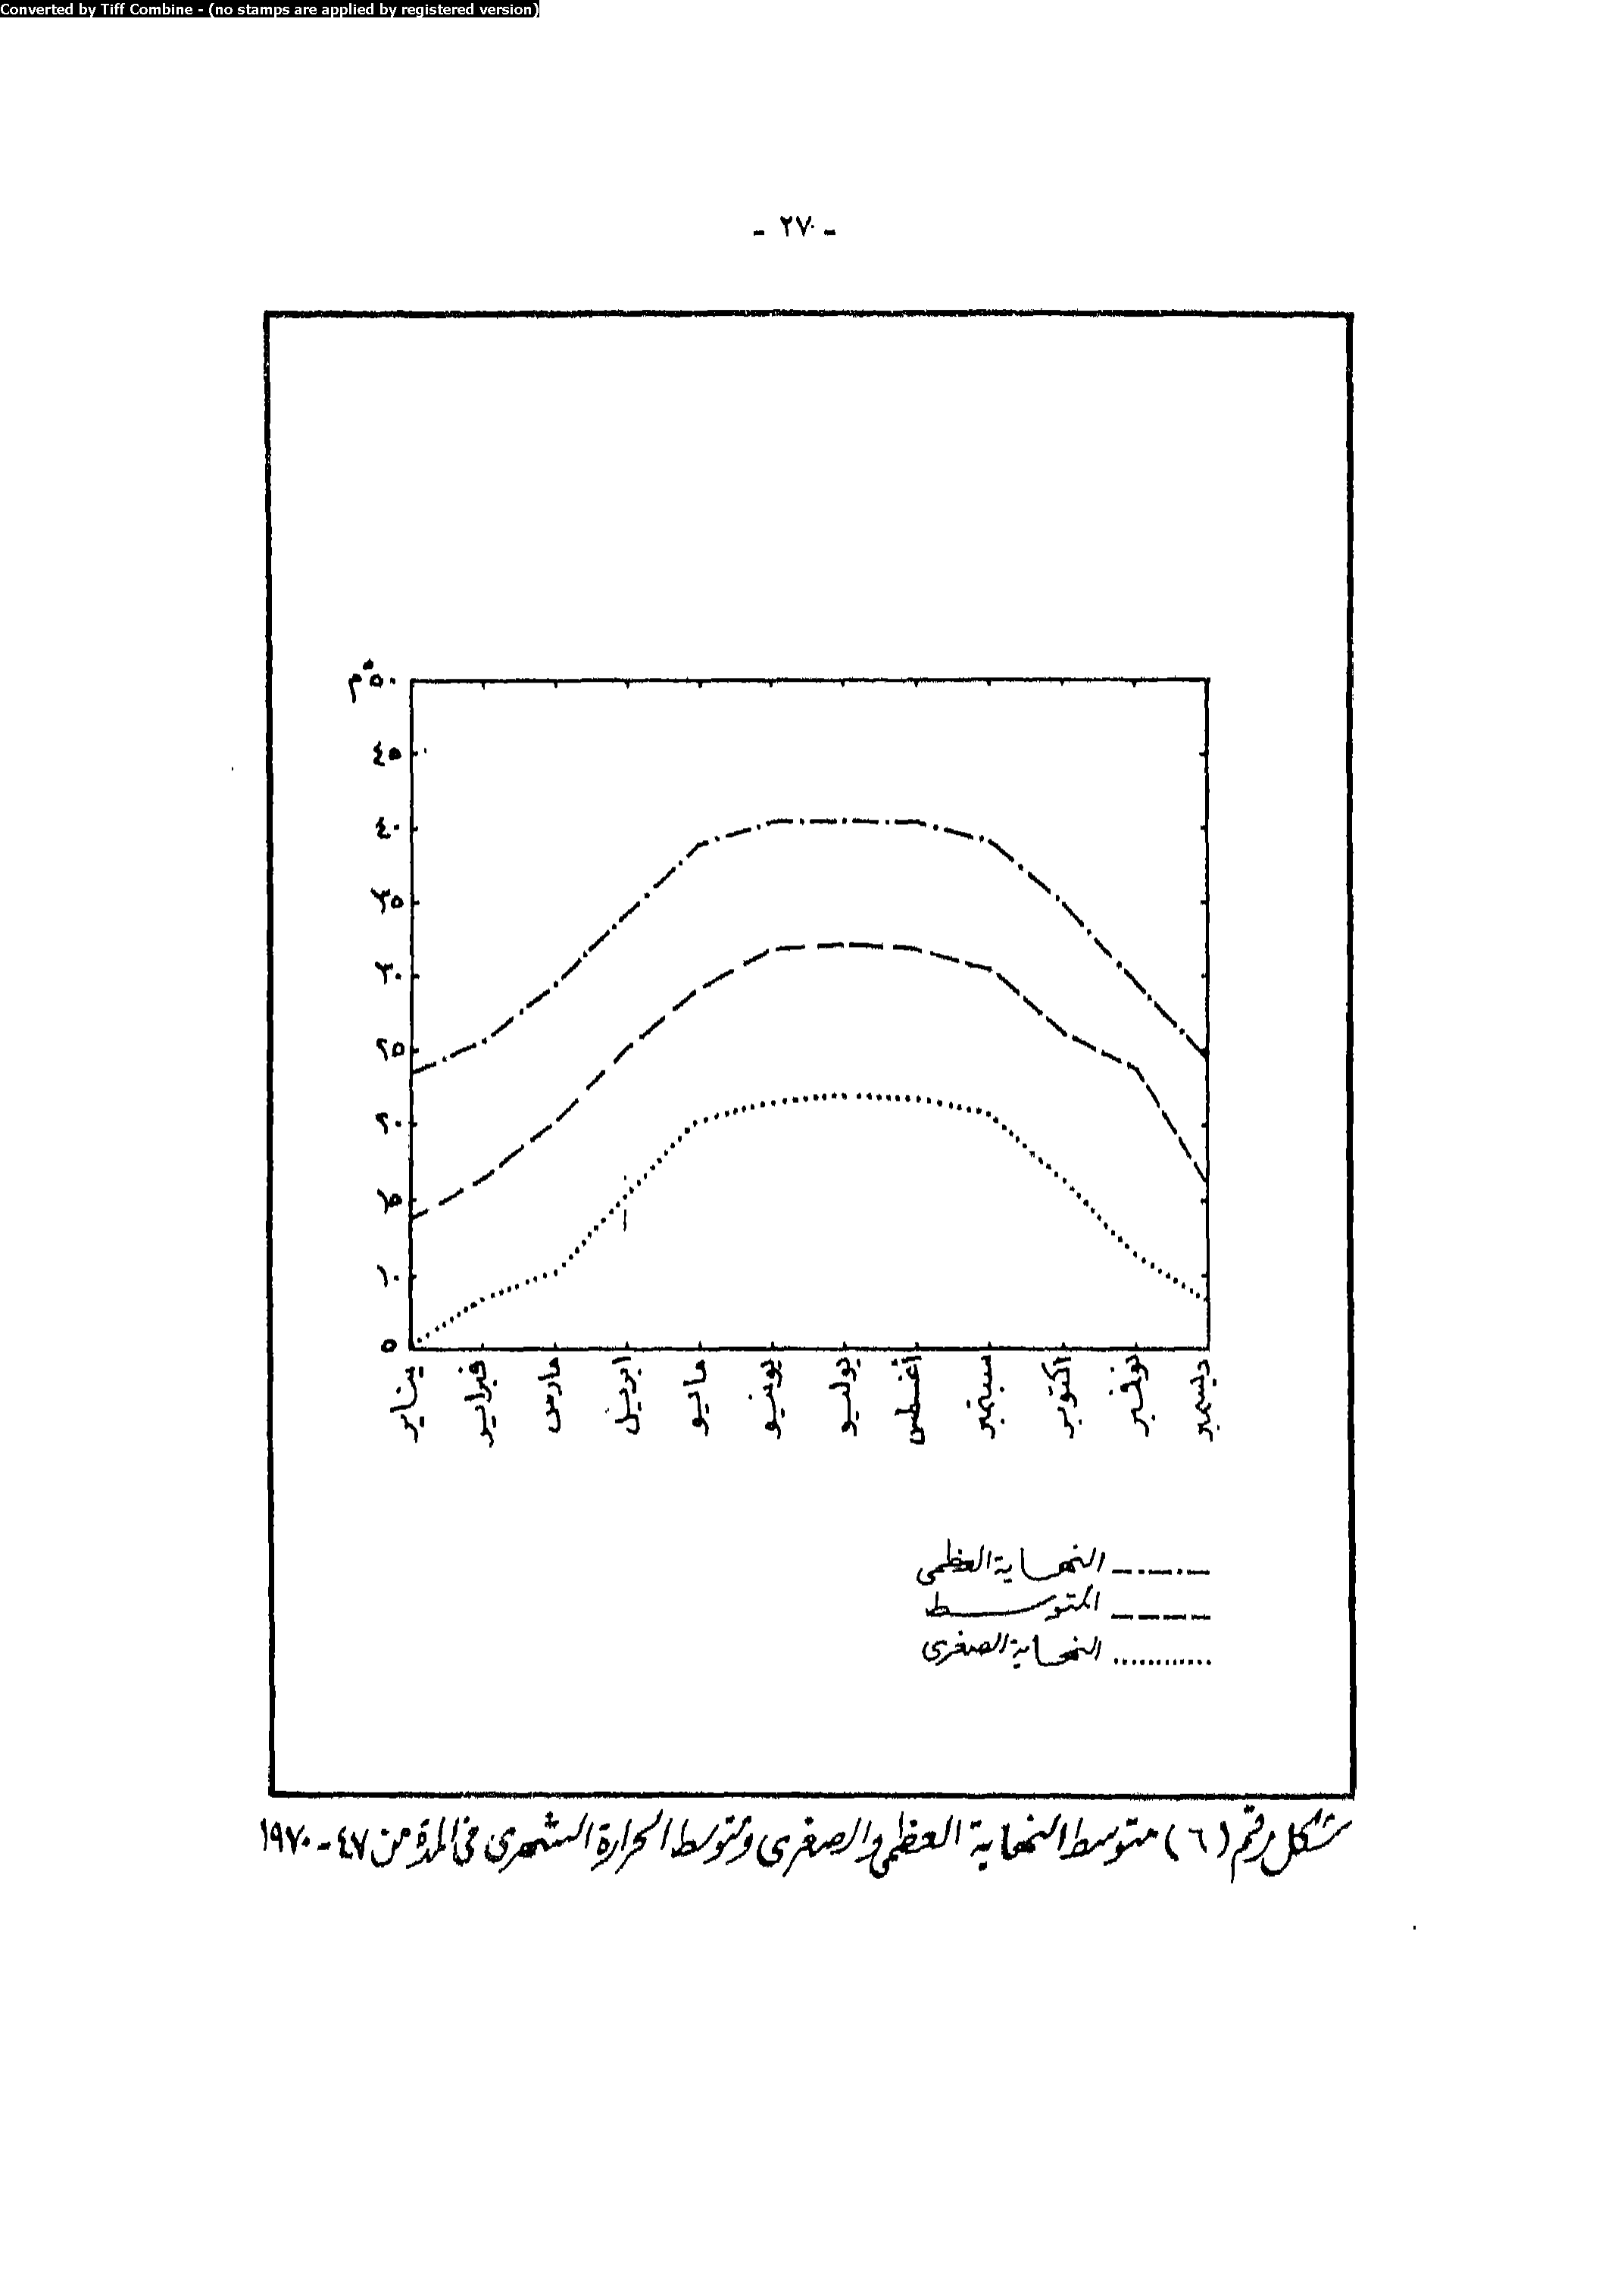 Converted by Tiff Combine - (no stamps are applied by registered version)
- ٢٧٠ -
٥٠°م
٤٥
٤٠
٣٥
٣٠
٢٥
٢٠
١٥
١٠
٥
يناير
فبراير
مارس
ابريل
مايو
يونيو
يوليو
أغسطس
سبتمبر
اكتوبر
نوفمبر
ديسمبر
النهاية العظمى
المتوسط
النهاية الصغرى
شكل رقم (٦) متوسط النهاية العظمى والصغرى ومتوسط الحرارة الشهرى فى المدة من ٤٧ - ١٩٧٠